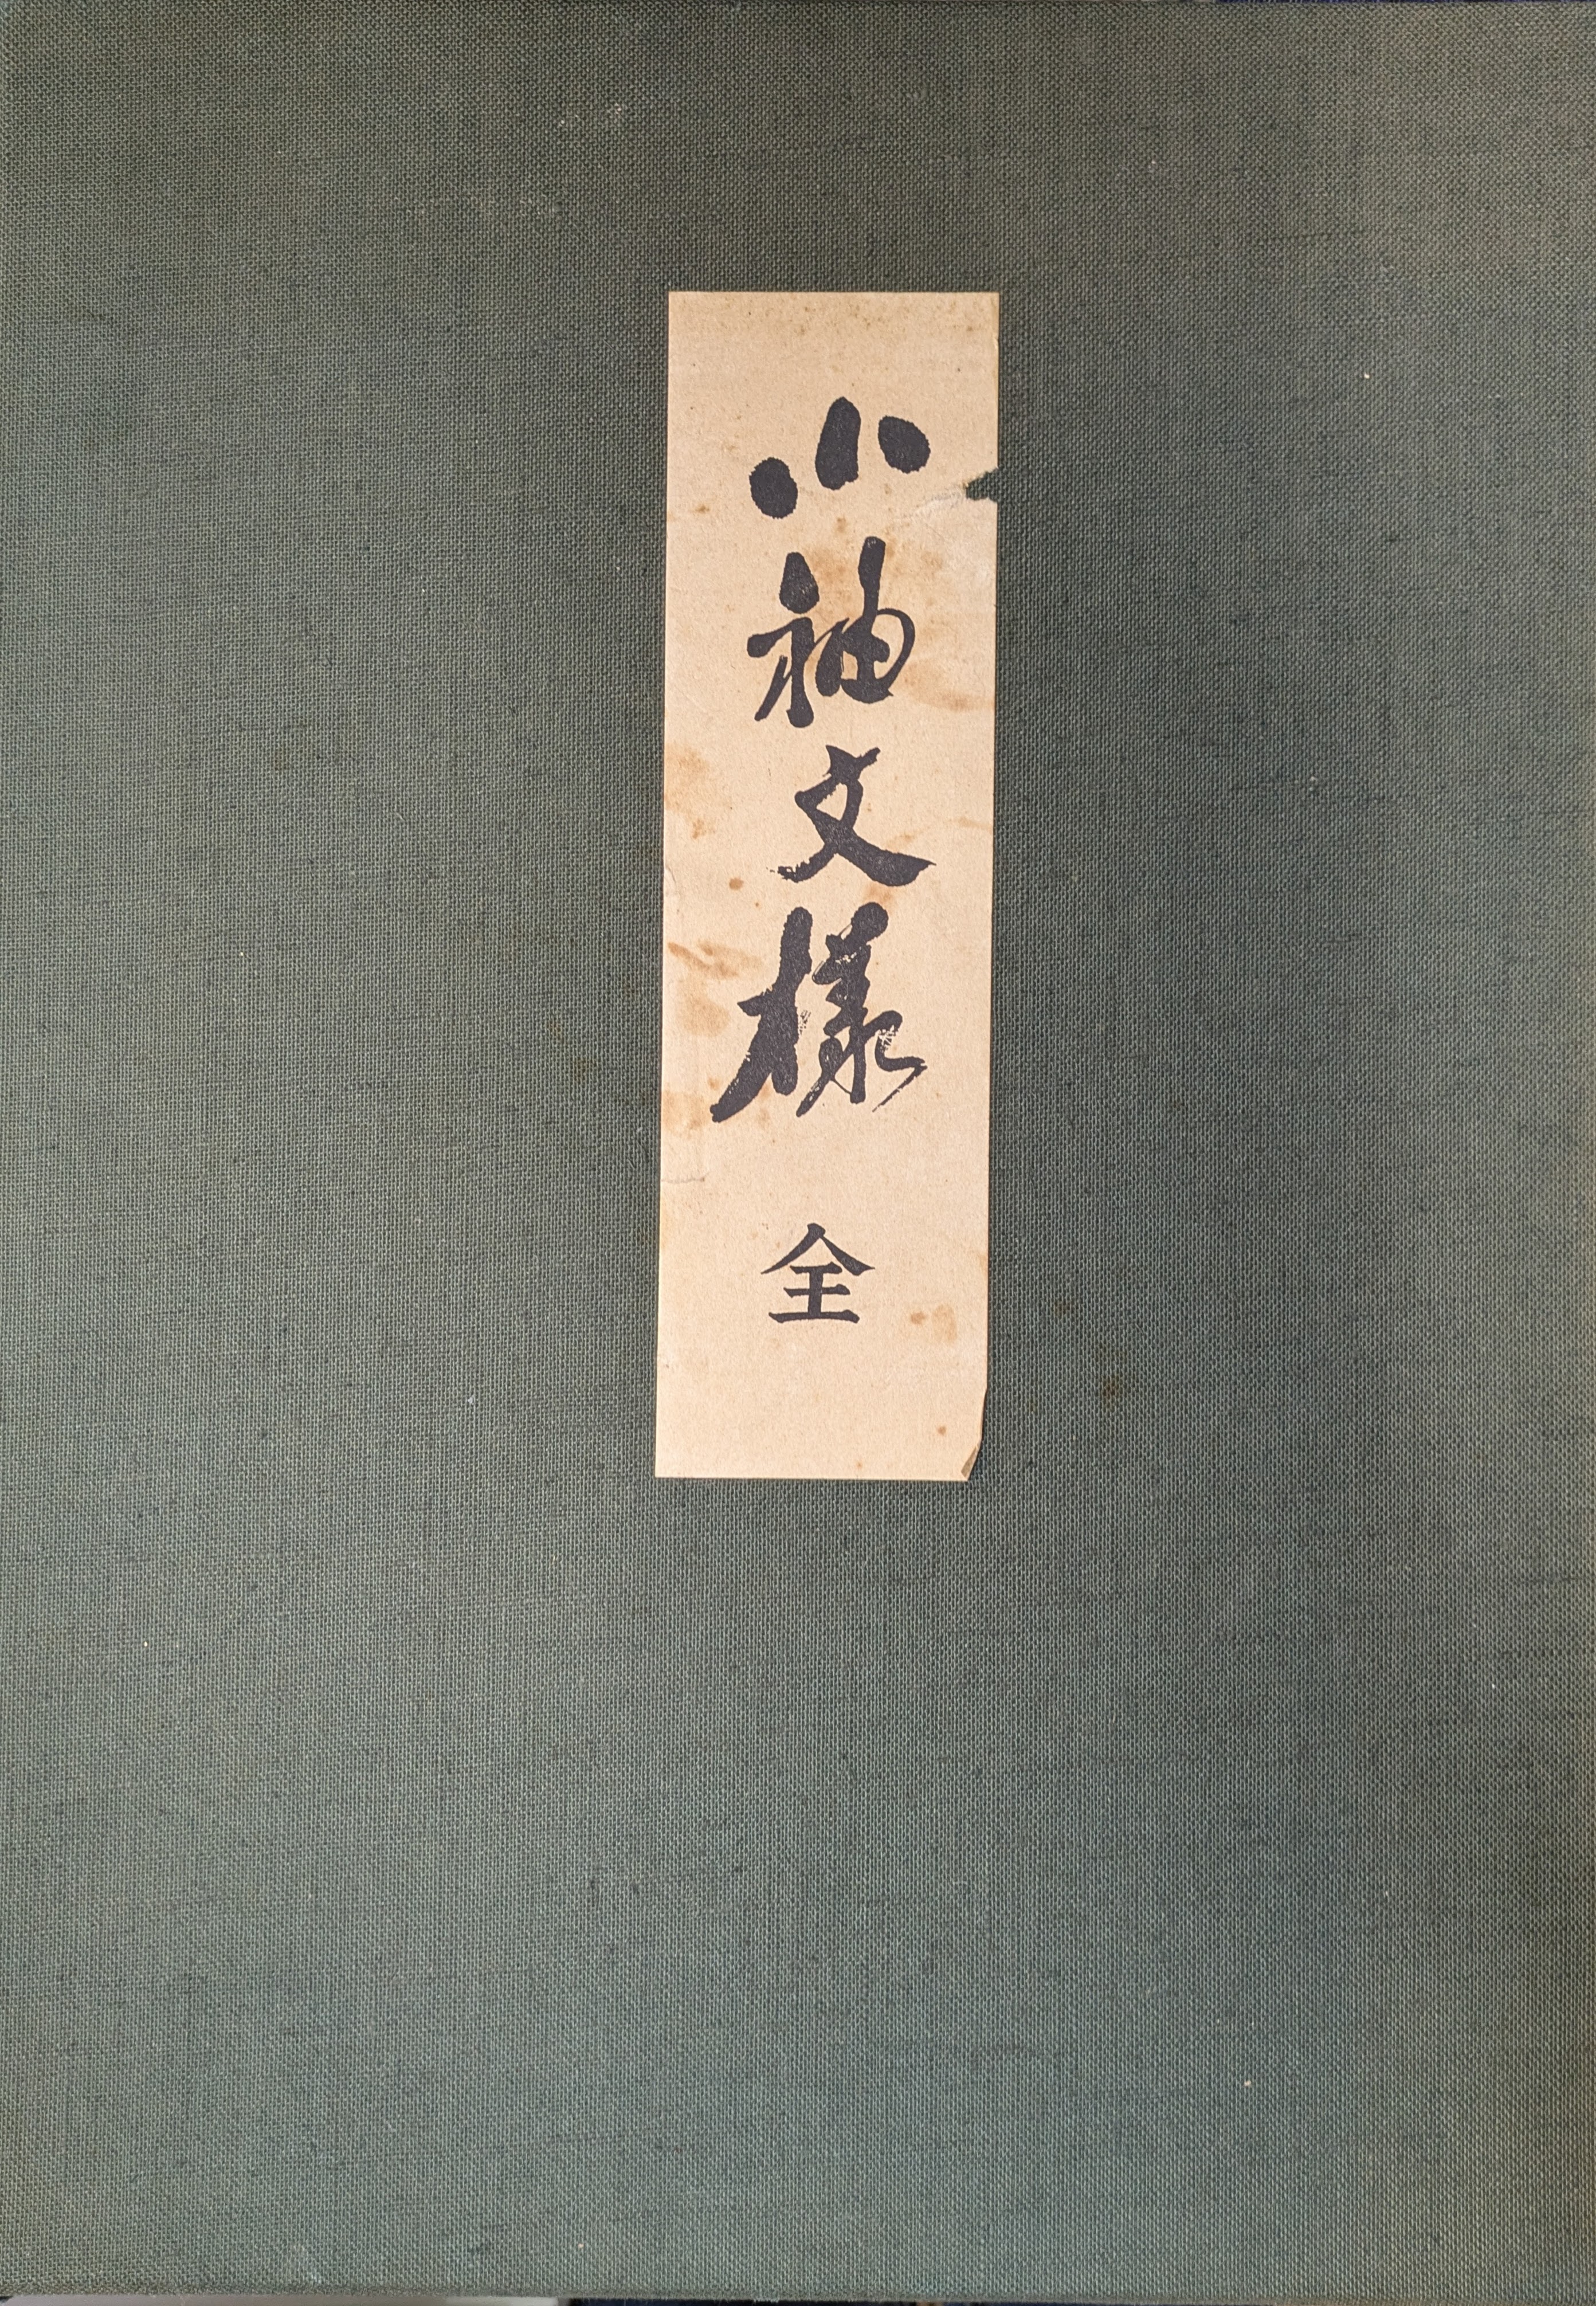 小袖文様
全